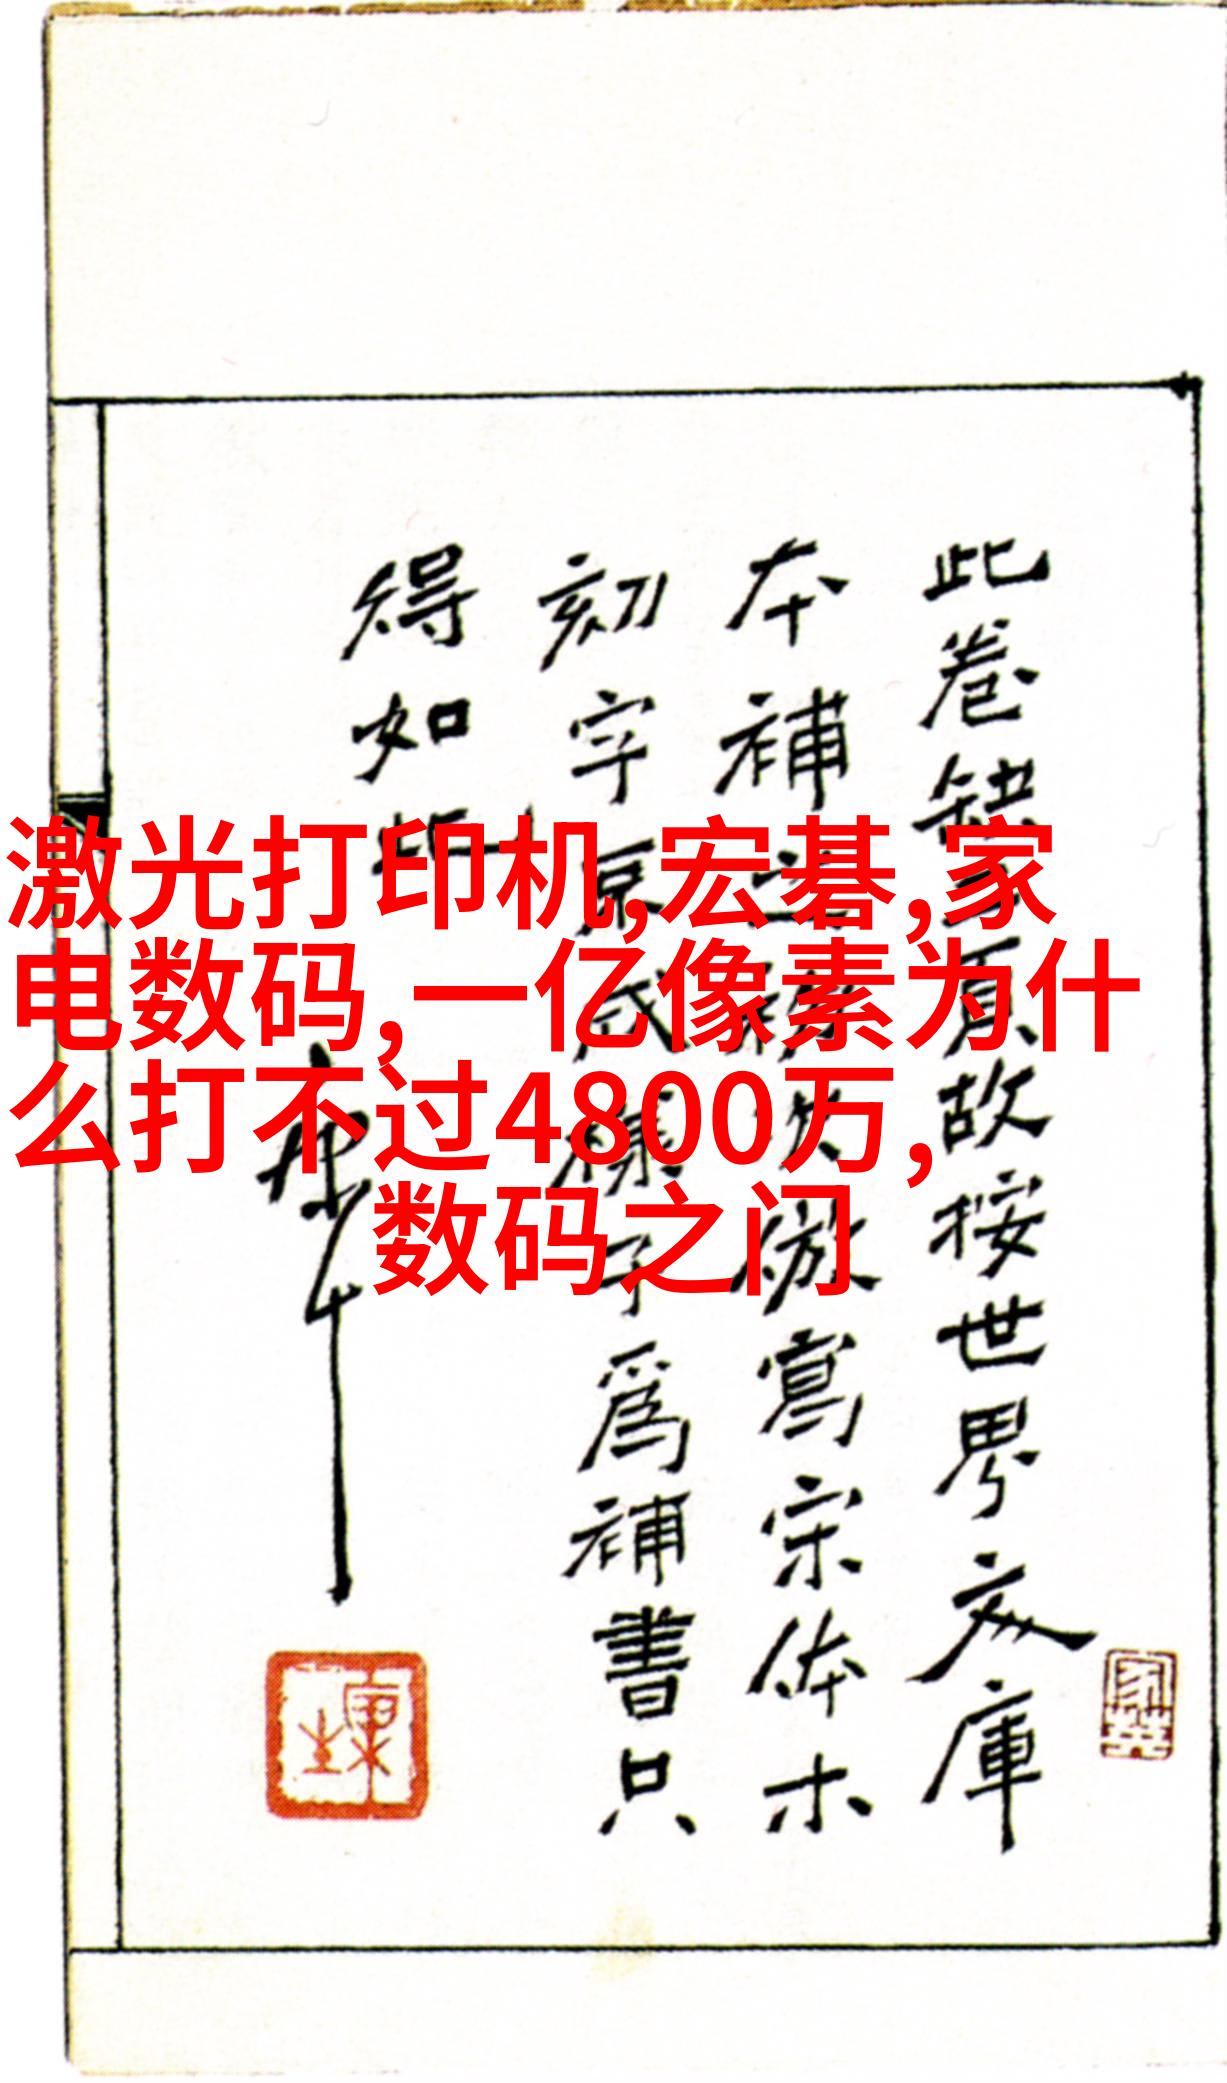 激光打印机,宏碁,家
电数码,一亿像素为什
么打不过4800万,
数码之门
此卷缺 頁故按世界文庫
本補 倣寫宋体木
刻字 氏様子爲補書只
得如此
康生